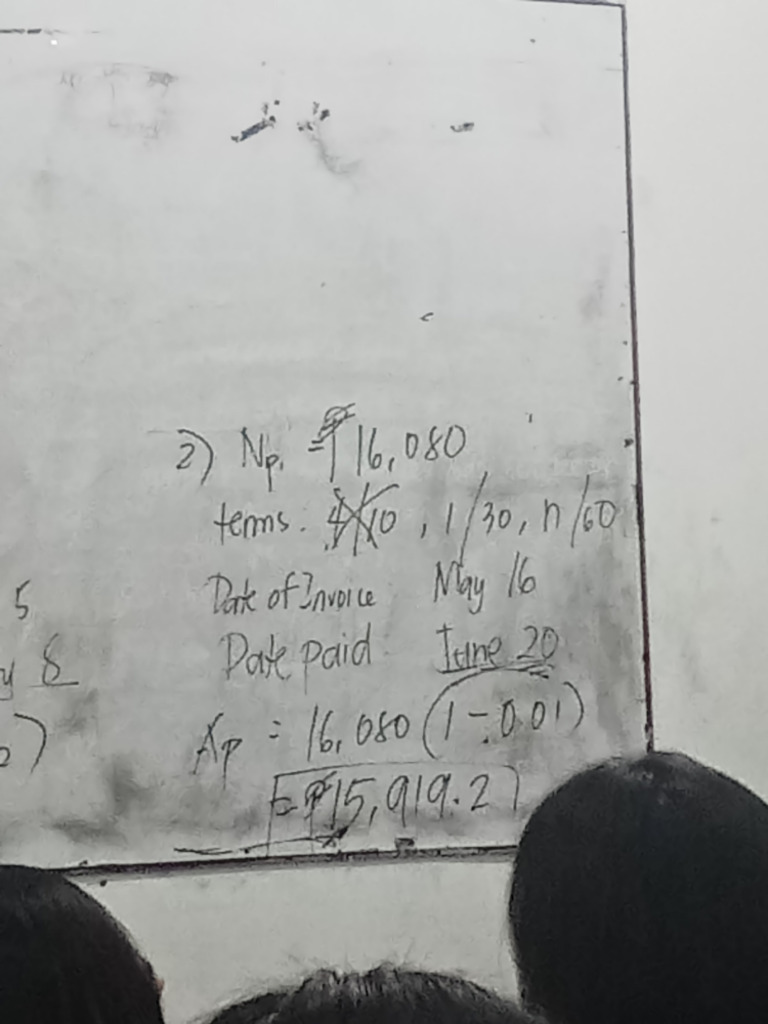 2) Np. = ₱16,080
terms. 4/10, 1/30, n/60
Date of Invoice May 16
Date paid June 20
5
y 8
Ap = 16,080 (1-0.01)
= ₱15,919.2